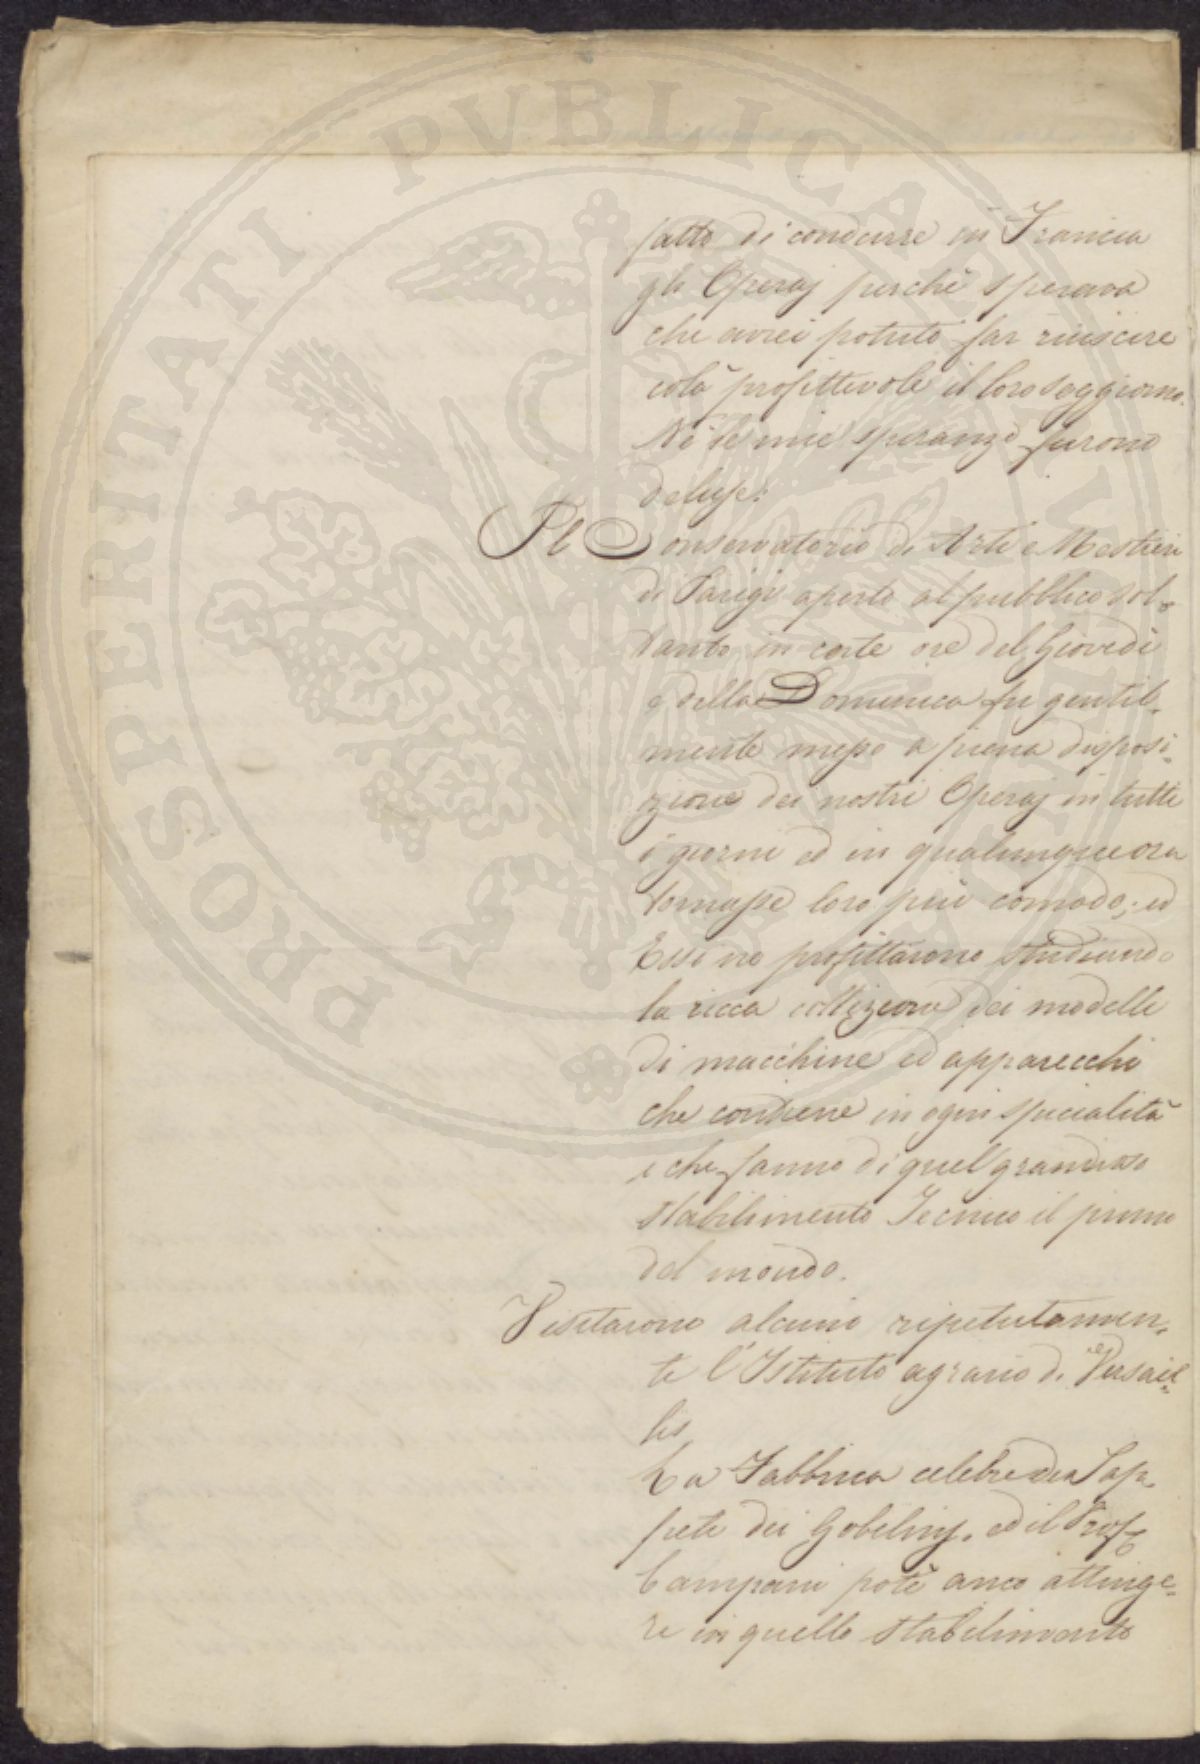 fatto di condurre in Francia
gli Operaj perchè sperava
che avrei potuto far riuscire
colà profittevole il loro soggiorno.
Nè le mie speranze furono
deluse.
Il Conservatorio di Arti e Mestieri
di Parigi aperto al pubblico sol-
tanto in certe ore del Giovedi
e della Domenica fu gentil-
mente messo a piena disposi-
zione dei nostri Operaj in tutti
i giorni ed in qualunque ora
tornasse loro più comodo; ed
Essi ne profittarono studiando
la ricca collezione dei modelli
di macchine ed apparecchi
che contiene in ogni specialità
e che fanno di quel grandioso
Stabilimento Tecnico il primo
del mondo.
Visitarono alcuni ripetutamen-
te l'Istituto agrario di Versail-
les
La Fabbrica celebre dei Tap-
peti dei Gobelins, ed il Prof.
Campani potè anco attinge-
re in quello stabilimento
PROSPERITATI PVBLICAE